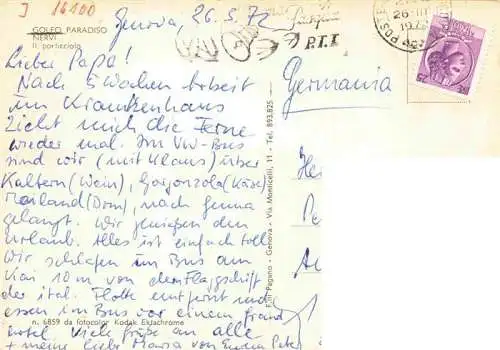 J 16400
Genova, 26.3.72
GOLFO PARADISO
NERVI
Il porticciolo
Pasqua
P.T.T.
POSTE
26-III
1972
Lieber Papa!
Nach 5 Wochen Arbeit
im Krankenhaus
zieht mich die Ferne
wieder mal. Im VW-Bus
sind wir (mit Klaus) über
Kaltern (Wein), Gorgonzola (Käse)
Mailand (Dom), nach Genua
gelangt. Wir genießen den
Urlaub. Alles ist einfach toll
Wir schlafen im Bus am
Kai 10 m von dem Flaggschiff
der ital. Flotte entfernt und
essen im Bus vor einem Grand
Hotel Viele Grüße an alle
+ meine liebe Mama von Eurem Peter
n. 6859 da fotocolor Kodak Ektachrome
F.lli Pagano - Genova - Via Monticelli, 11 - Tel. 893.825
Germania
He
Pe